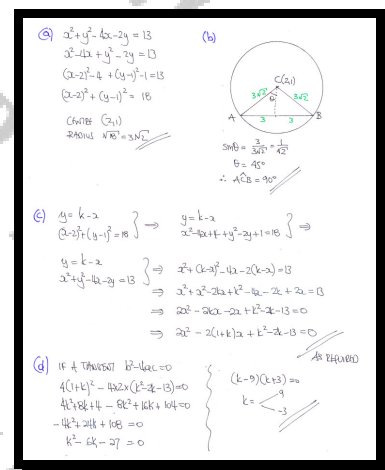 (a) x²+y²-4x-2y = 13
x²-4x+y²-2y = 13
(x-2)²-4+(y-1)²-1=13
(x-2)²+(y-1)² = 18
CENTRE (2,1)
RADIUS √18 = 3√2
(b)
C(2,1)
3√2 θ 3√2
A 3 3 B
sinθ = 3/3√2 = 1/√2
θ = 45°
∴ AĈB = 90°
(c) y = k-x
(x-2)²+(y-1)² = 18 } ⇒ y = k-x
x²-4x+4+y²-2y+1=18 } ⇒
y = k-x
x²+y²-4x-2y = 13 } ⇒ x²+(k-x)²-4x-2(k-x)=13
⇒ x²+x²-2kx+k²-4x-2k+2x=13
⇒ 2x²-2kx-2x+k²-2k-13=0
⇒ 2x²-2(1+k)x+k²-2k-13=0
AS REQUIRED
(d) IF A TANGENT b²-4ac=0
4(1+k)²-4×2×(k²-2k-13)=0
4k²+8k+4-8k²+16k+104=0
-4k²+24k+108 = 0
k²-6k-27 = 0
(k-9)(k+3)=0
k = < 9
-3